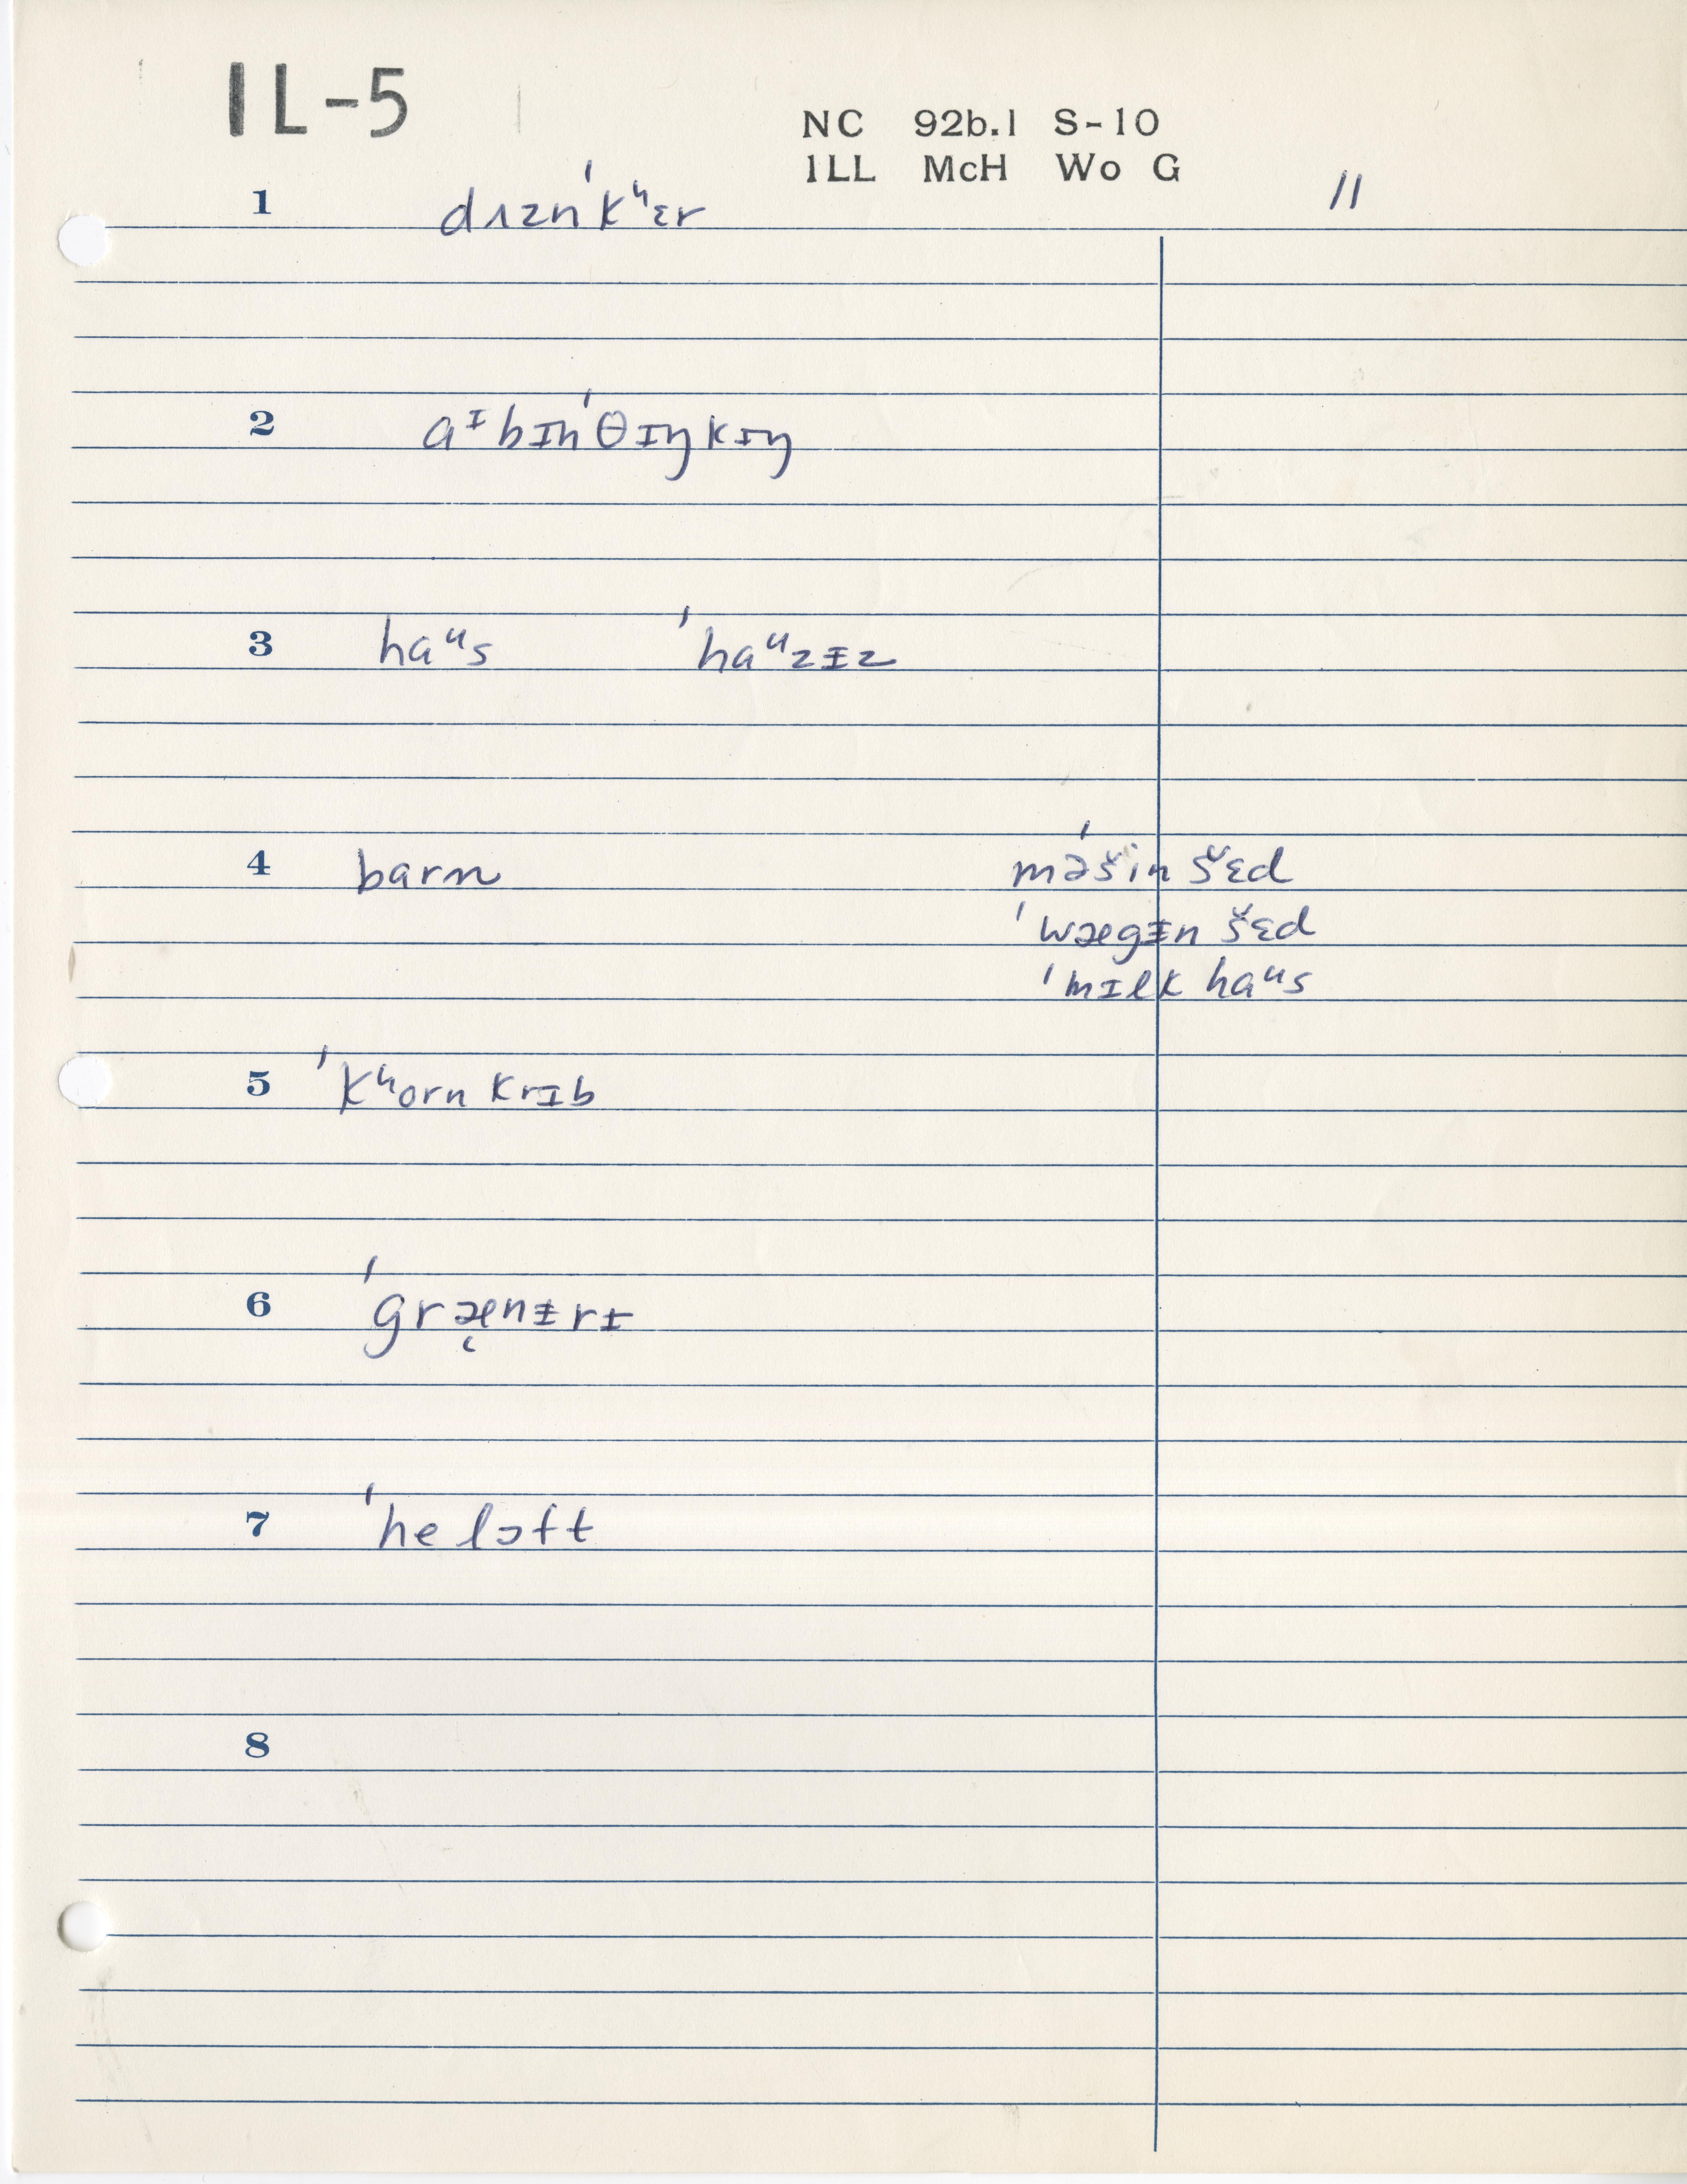 IL-5
NC 92b.1 S-10
ILL McH Wo G
11
1 dʌznˈkʰɛr
2 aᶦbɪnˈθɪŋkɪŋ
3 haᵘs ˈhaᵘzᵻz
4 barn məˈšin šɛd
ˈwægᵻn šɛd
ˈmɪlk haᵘs
5 ˈkʰorn krɪb
6 ˈgræ̨nᵻrɪ
7 ˈhe lɔft
8